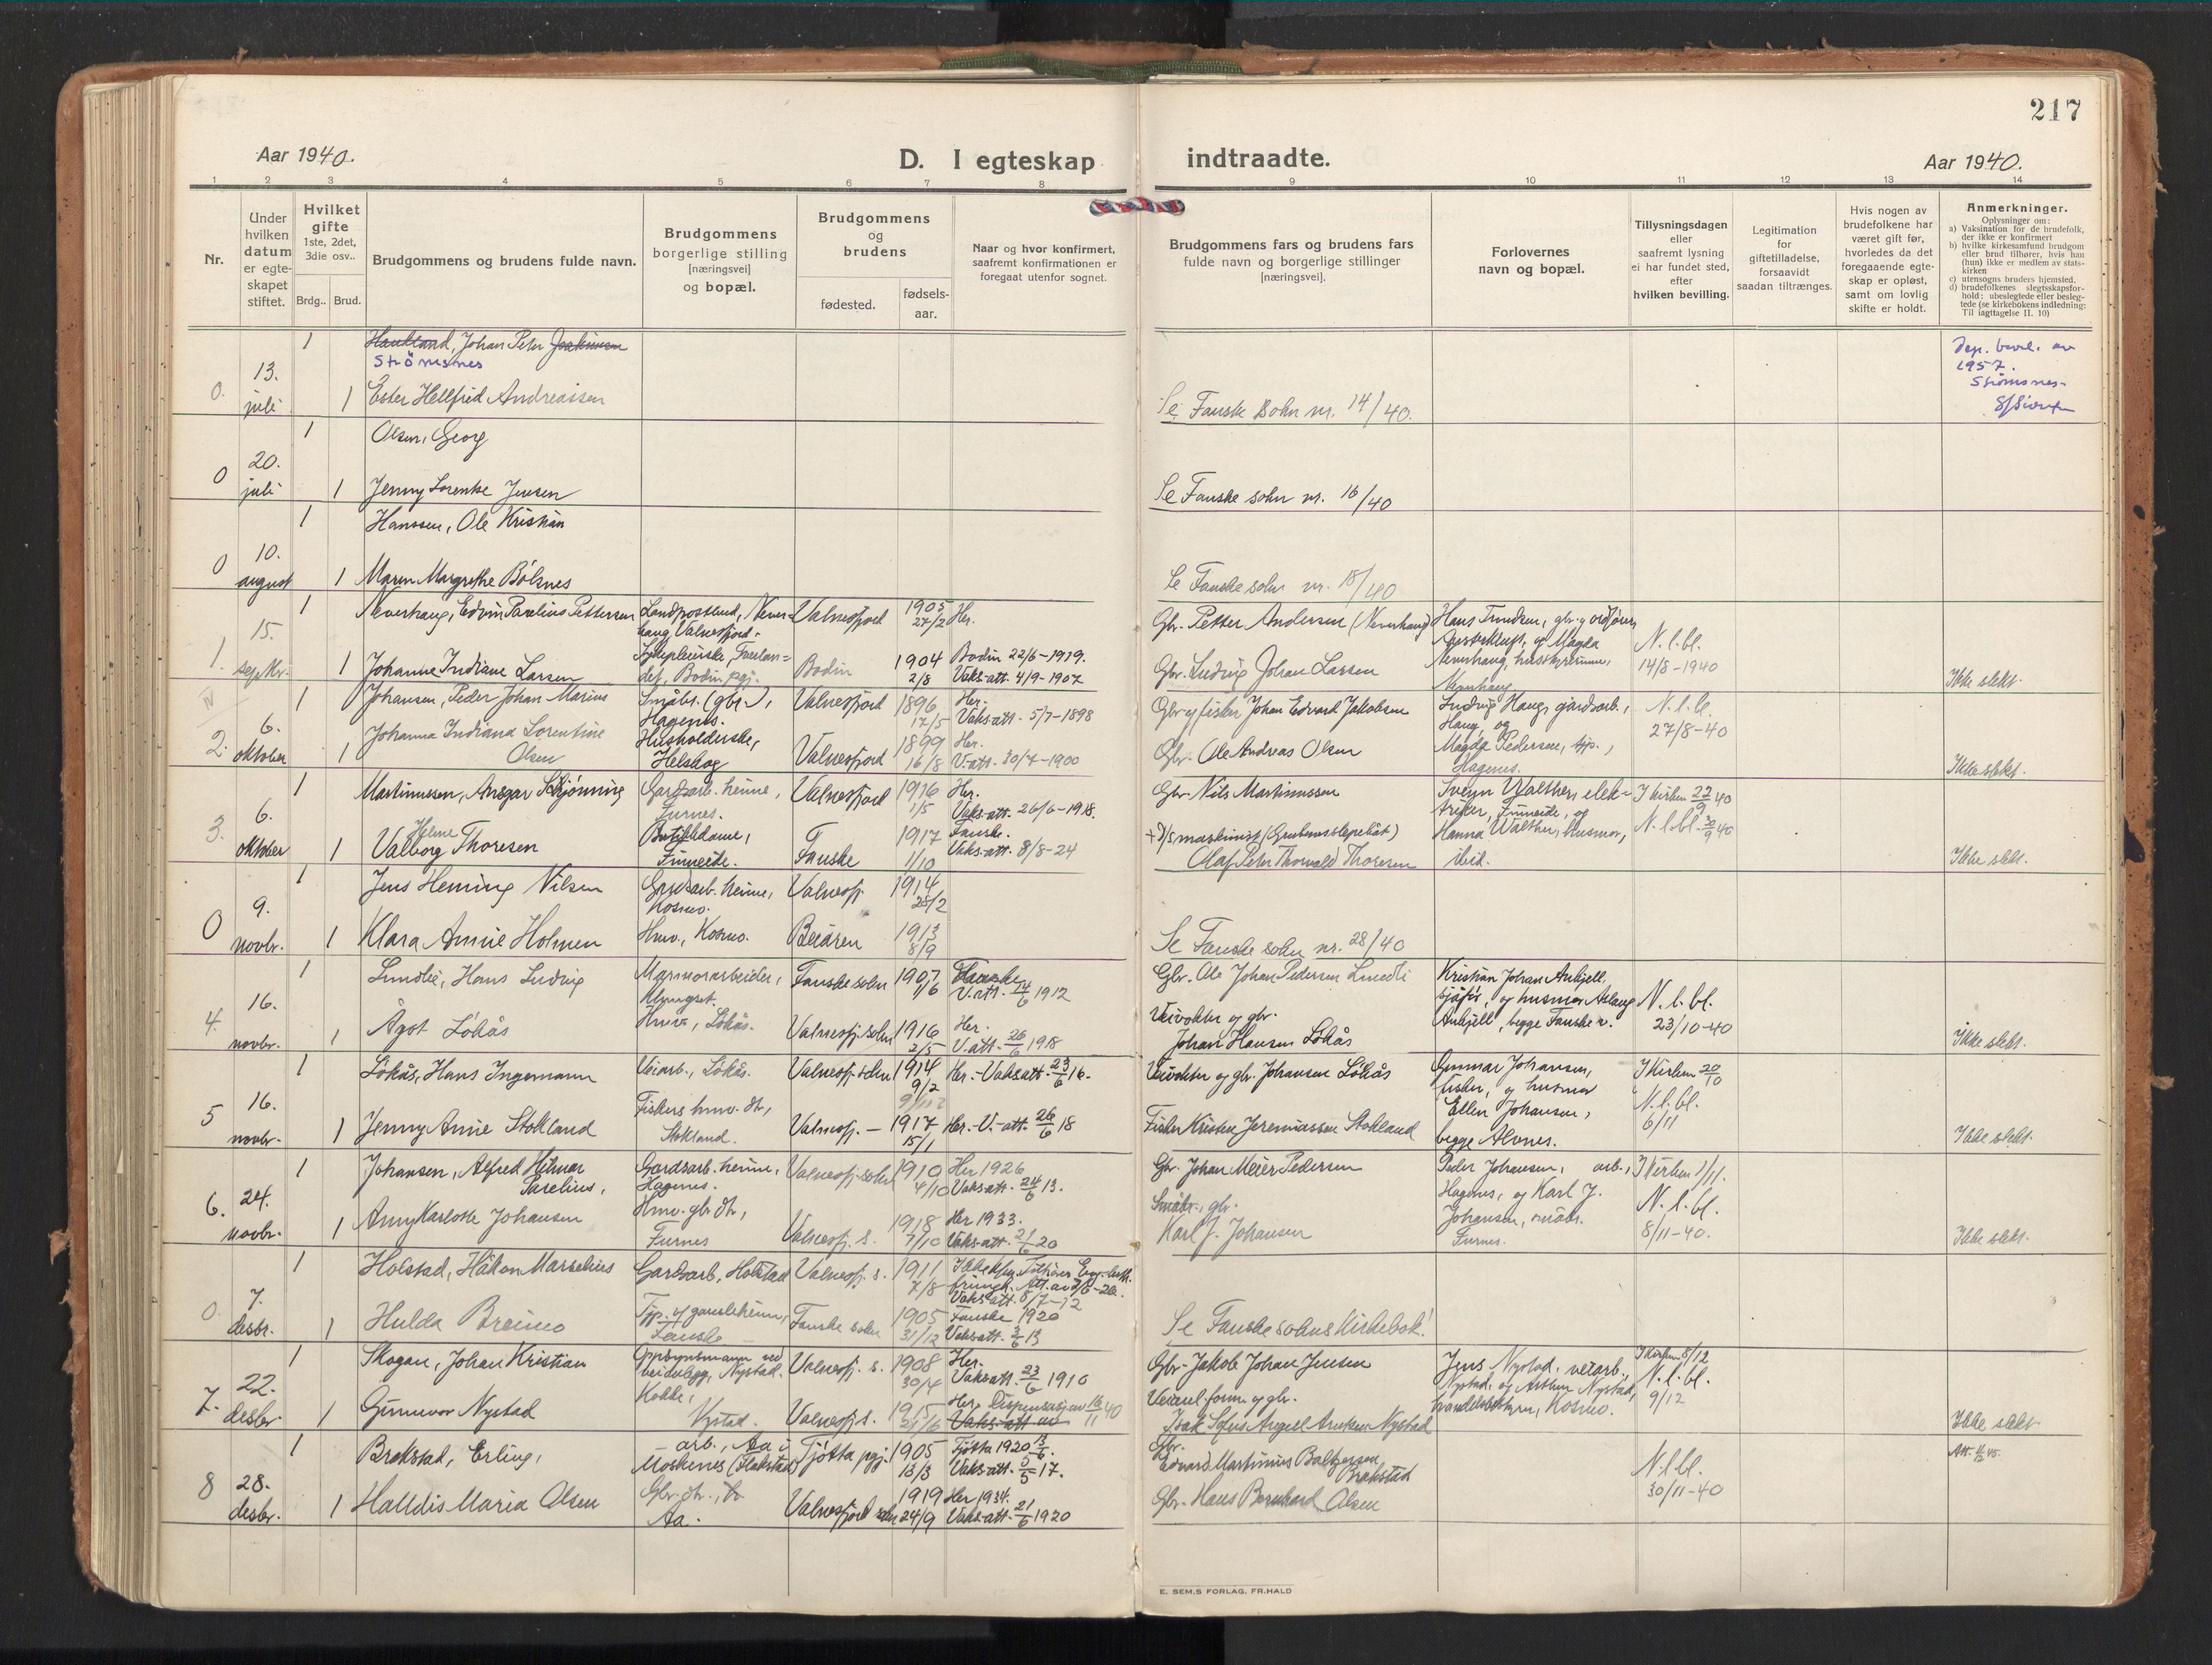 217
Aar 1940.
D. I egteskap indtraadte.
Aar 1940.
1 2 3 4 5 6 7 8 9 10 11 12 13 14
Nr.
Under hvilken datum er egteskapet stiftet.
Hvilket gifte
1ste, 2det, 3die osv..
Brdg.. Brud.
Brudgommens og brudens fulde navn.
Brudgommens borgerlige stilling [næringsvei] og bopæl.
Brudgommens og brudens
fødested. fødselsaar.
Naar og hvor konfirmert, saafremt konfirmationen er foregaat utenfor sognet.
Brudgommens fars og brudens fars fulde navn og borgerlige stillinger [næringsvei].
Forlovernes navn og bopæl.
Tillysningsdagen eller saafremt lysning ei har fundet sted, efter hvilken bevilling.
Legitimation for giftetilladelse, forsaavidt saadan tiltrænges.
Hvis nogen av brudefolkene har været gift før, hvorledes da det foregaaende egteskap er opløst, samt om lovlig skifte er holdt.
Anmerkninger.
Oplysninger om:
a) Vaksination for de brudefolk, der ikke er konfirmert
b) hvilke kirkesamfund brudgom eller brud tilhører, hvis han (hun) ikke er medlem av statskirken
c) utensogns bruders hjemsted.
d) brudefolkenes slegtsskapsforhold: ubeslegtede eller beslegtede (se kirkebokens indledning: Til iagttagelse II. 10)
0. 13. juli 1
Haukland, Johan Peter Joakimsen
Strömsnes
1 Ester Hellfrid Andreassen
Se Fauske sokn nr. 14/40.
Dep. bevil. av
1957.
Strömsnes-
0 20. juli 1
Olsen, Georg
1 Jenny Lorentse Jensen
Se Fauske sokn nr. 16/40
0 10. august 1
Hanssen, Ole Kristian
1 Maren Margrethe Bölsnes
Se Fauske sokn nr. 18/40
1. 15. septbr. 1
Neverhaug, Edvin Parelius Pettersen
Landpostbud, Neverhaug, Valnesfjord.
Valnesfjord 1905 27/2 Her.
Gbr. Petter Andersen (Neverhaug)
Hans Trondsen, gbr. og ordfører, og Magda Neverhaug, husstyrerinne, Neverhaug
N. l. bl.
14/8-1940
1 Johanne Indiane Larsen
Sykepleierske, Tverlandet, Bodin pgj.
Bodin 1904 2/8 Bodin 22/6-1919. Vaks.att. 4/9-1907
Gbr. Ludvig Johan Larsen
Ikke slekt.
IV
2. 6. oktober 1
Johansen, Peder Johan Marius
Småbr. (gbr.), Hagenes.
Valnesfjord 1896 17/5 Her. Vaks.att. 5/7-1898
Gbr. og fisker Johan Edvard Jakobsen
Ludvig Haug, gårdsarb., Haug, og Magda Pedersen, tjp., Hagenes.
N. l. bl.
27/8-40
1 Johanna Indiana Lorentine Olsen
Husholderske, Helskog
Valnesfjord 1899 16/8 Her. V.att. 30/4-1900
Gbr. Ole Andreas Olsen
Ikke slekt.
3. 6. oktober 1
Martinussen, Ansgar Schjönning
Gardsarb. heime, Furnes.
Valnesfjord 1916 1/5 Her. Vaks.att. 26/6-1918.
Gbr. Nils Martinussen
Walther, elektriker, Finneide, og Hanna Walther, husmor, ibid.
I kirken 22/9 40
N. l. bl. 30/9 40
1 Helene Valborg Thoresen
Butikkdame, Finneide.
Fauske 1917 1/10 Fauske. Vaks.att. 8/8-24
+ D/S maskinist (Grubensslepebåt)
Olaf Peter Thorvald Thoresen
Ikke slekt.
0 9. novbr. 1
Jens Heming Nilsen
Gardsarb. heime, Kosmo.
Valnesfj. 1914 28/2
1 Klara Annie Holmen
Hmv., Kosmo.
Beiaren 1913 8/9
Se Fauske sokn nr. 28/40
4. 16. novbr. 1
Lundlie, Hans Ludvig
Marmorarbeider, Klungset.
Fauske sokn 1907 1/6 Fauske V.att. 14/6 1912
Gbr. Ole Johan Pedersen Lundli
Kristian Johan Anhjell, sjåfør, og husmor Aslaug Anhjell, begge Fauske v.
N. l. bl.
23/10-40
1 Ågot Lökås
Hmv., Lökås.
Valnesfj. sokn 1916 2/5 Her. V.att. 26/6 1918
Veivokter og gbr. Johan Hansen Lökås
Ikke slekt.
5 16. novbr. 1
Lökås, Hans Ingemann
Veiarb., Lökås.
Valnesfj. sokn 1914 9/2 Her.-Vaks.att. 23/6 16.
Veivokter og gbr. Johansen Lökås
Gunnar Johansen, fisker, og husmor Ellen Johansen, begge Alvnes.
I kirken 20/10
N. l. bl.
6/11
1 Jenny Annie Stokland
Fiskers hmv. dtr., Stokland.
Valnesfj. - 1917 15/1 Her.-V.-att. 26/6 18
Fisker Kristen Jeremiassen Stokland
Ikke slekt.
6. 24. novbr. 1
Johansen, Alfred Hilmar Parelius,
Gardsarb. heime, Hagenes.
Valnesfj. sokn 1910 4/10 Her 1926 Vaks.att. 24/6 13.
Gbr. Johan Meier Pedersen
Peder Johansen, arb., Hagenes, og Karl J. Johansen, småbr. Furnes.
I kirken 1/11.
N. l. bl.
8/11-40.
1 Anny Karlotte Johansen
Hmv. gbr. dtr., Furnes
Valnesfj. s. 1918 7/10 Her 1933. Vaks.att. 21/6 20
Småbr., gbr. Karl J. Johansen
Ikke slekt.
0. 7. desbr. 1
Holstad, Håkon Marselius
Gardsarb., Holstad
Valnesfj. s. 1911 7/8 Vaks.att. 8/7-12
1 Hulda Breimo
Fauske
Fauske sokn 1905 31/12 Fauske 1920 Vaks.att. 3/6 13
Se Fauske sokns kirkebok!
7. 22. desbr. 1
Skogan, Johan Kristian
Oppsynsmann ved veianlegg, Nystad.
Valnesfj. s. 1908 30/4 Her. Vaks.att. 23/6 1910
Gbr. Jakob Johan Jensen
Jens Nystad, veiarb., Nystad, og Arthur Nystad, handelsbestyrer, Kosmo.
I kirken 8/12
N. l. bl.
9/12
1 Gunnvor Nystad
Kokke, Nystad.
Valnesfj. s. 1915 21/6 Her. Dispensasjon 16/11 40 Vaks.att. av
Veianl.form. og gbr. Isak Sofus Angell Arntsen Nystad
Ikke slekt
8 28. desbr. 1
Brekstad, Erling,
arb., Aa i Moskenes (Flakstad)
Tjötta pgj. 1905 13/3 Tjötta 1920 13/6. Vaks.att. 5/5 17.
Gbr. Edvard Martinius Baltzersen Brekstad
N. l. bl.
30/11-40
1 Halldis Maria Olsen
Gbr. dtr., Aa.
Valnesfjord sokn 1919 24/9 Her 1934. Vaks.att. 21/6 1920
Gbr. Hans Bernhard Olsen
E. SEM.S FORLAG, FR.HALD